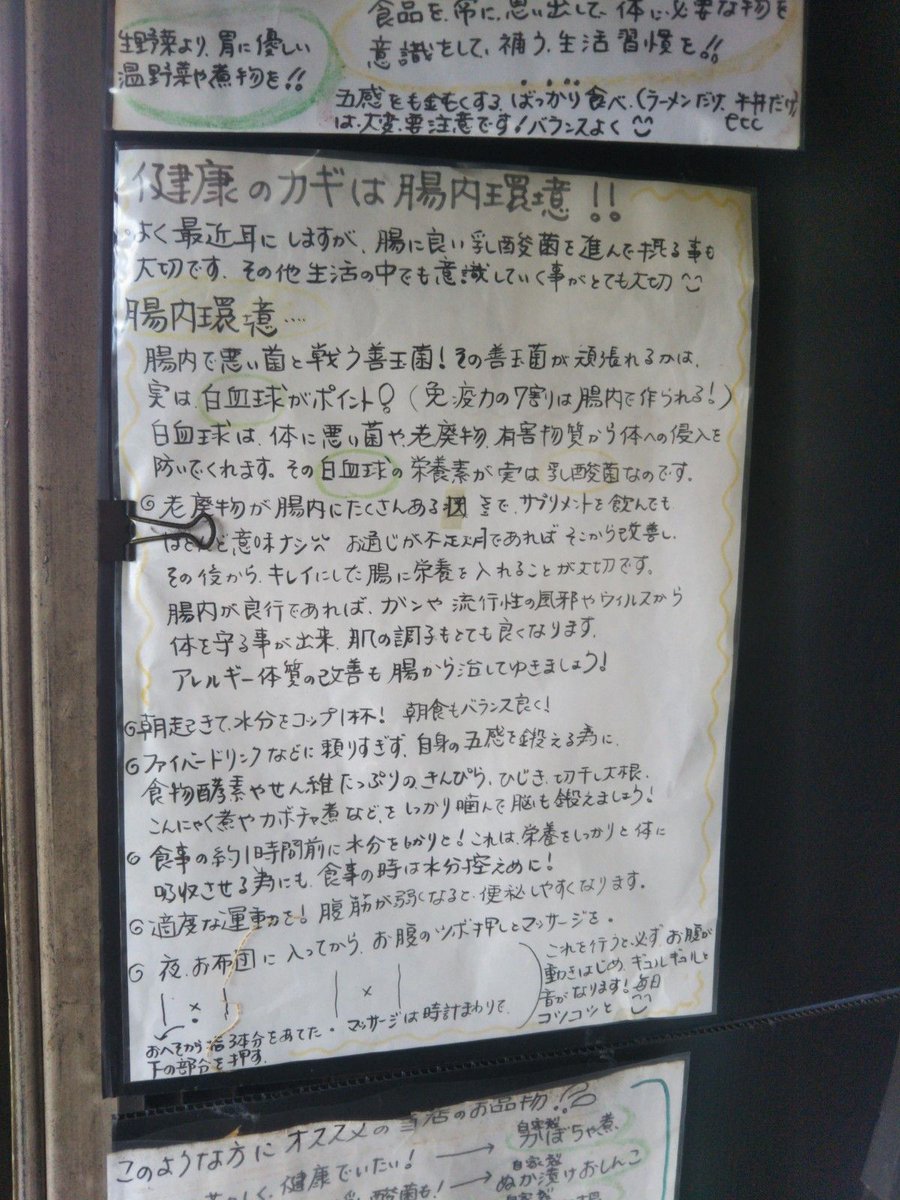 生野菜より、胃に優しい
温野菜や煮物を!!
食品を、常に、思い出して、体に、必要な物を
意識をして、補う、生活習慣を!!
五感をも鈍くする、ばっかり食べ、(ラーメンだけ、牛丼だけ)
etc
は、大変、要注意です!バランスよく
健康のカギは腸内環境!!
よく最近耳にしますが、腸に良い乳酸菌を進んで摂る事も
大切です、その他生活の中でも意識していく事がとても大切
腸内環境....
腸内で悪い菌と戦う善玉菌!その善玉菌が頑張れるかは、
実は、白血球がポイント!(免疫力の7割りは腸内で作られる!)
白血球は、体に悪い菌や、老廃物、有害物質から体への侵入を
防いでくれます。その白血球の栄養素が実は乳酸菌なのです。
老廃物が腸内にたくさんある まで、サプリメントを飲んでも
ほとんど意味ナシ お通じが不定期であればそこから改善し、
その後から、キレイにした腸に栄養を入れることが大切です。
腸内が良行であれば、ガンや流行性の風邪やウィルスから
体を守る事が出来、肌の調子もとても良くなります。
アレルギー体質の改善も腸から治してゆきましょう!
朝起きて、水分をコップ1杯! 朝食もバランス良く!
ファイバードリンクなどに頼りすぎず、自身の五感を鍛える為に、
食物酵素やせん維たっぷりの、きんぴら、ひじき、切干し大根、
こんにゃく煮やカボチャ煮など、をしっかり噛んで脳も鍛えましょう!
食事の約1時間前に水分をしっかりと!これは、栄養をしっかりと体に
吸収させる為にも、食事の時は水分控えめに!
適度な運動を!腹筋が弱くなると、便秘しやすくなります。
夜、お布団に入ってから、お腹のツボ押しとマッサージを。
おへそから指3本分をあてた
下の部分を押す。
マッサージは時計まわりで、
これを行うと、必ず、お腹が
動きはじめ、ギュルギュルと
音がなります!毎日
コツコツと
このような方にオススメの当店のお品物!!
健康でいたい!
自家製
かぼちゃ煮、
乳酸菌も!
自家製
ぬか漬けおしんこ
自家製